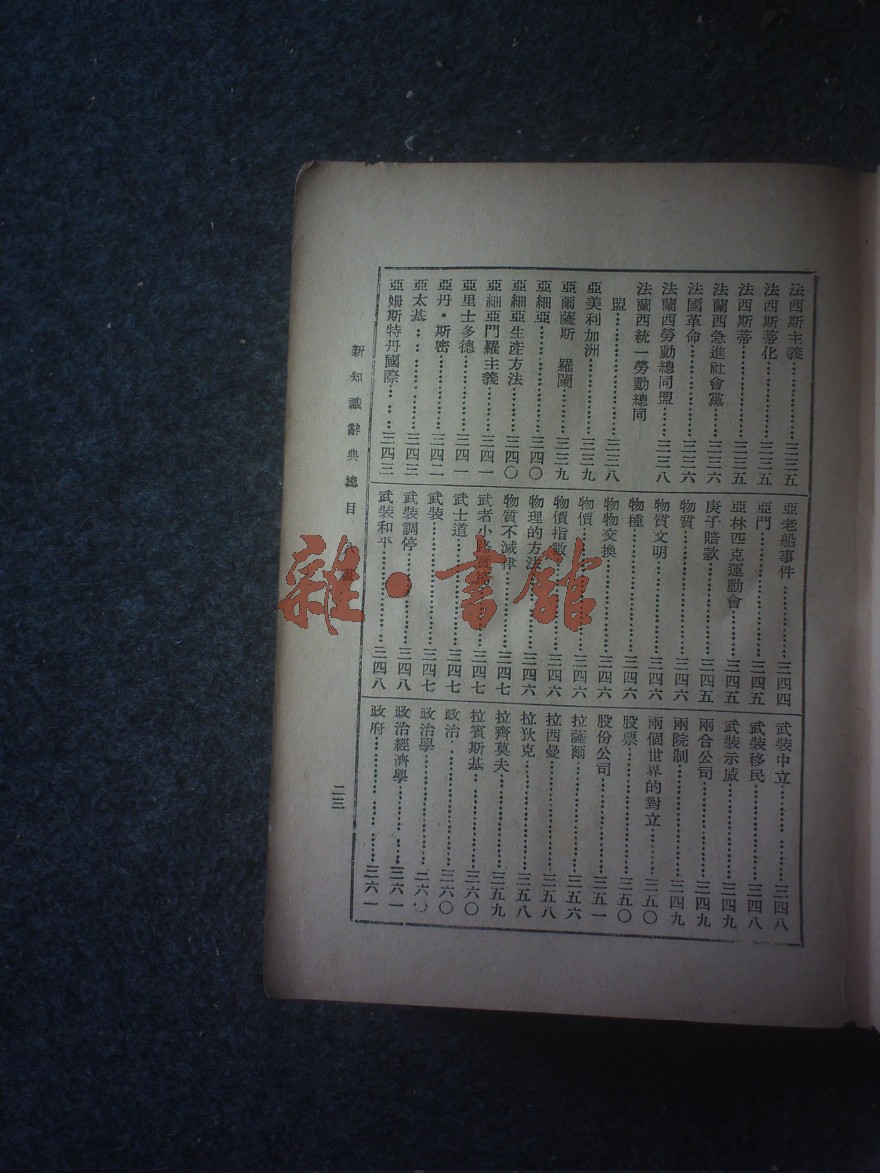 法西斯主義…………三三五
法西斯蒂化…………三三五
法西斯蒂…………三三五
法蘭西急進社會黨……三三六
法國革命…………三三六
法蘭西勞動總同盟……三三八
法蘭西統一勞動總同
盟…………三三八
亞美利加洲…………三三九
亞爾薩斯 羅蘭……三三九
亞細亞…………三四〇
亞細亞生產方法……三四〇
亞細亞門羅主義……三四一
亞里士多德…………三四一
亞丹·斯密…………三四二
亞太基…………三四三
亞姆斯特丹國際……三四三
亞老船事件…………三四四
亞門…………三四五
亞林匹克運動會……三四五
庚子賠款…………三四五
物質…………三四六
物質文明…………三四六
物種…………三四六
物物交換…………三四六
物價…………三四六
物價指數…………三四六
物理的方法…………三四六
物質不滅律…………三四七
武者小路…………三四七
武士道…………三四七
武裝…………三四七
武裝調停…………三四八
武裝和平…………三四八
武裝中立…………三四八
武裝移民…………三四八
武裝示威…………三四九
兩合公司…………三四九
兩院制…………三四九
兩個世界的對立……三五〇
股票…………三五〇
股份公司…………三五一
拉薩爾…………三五六
拉西曼…………三五八
拉狄克…………三五八
拉齊莫夫…………三五九
拉賓斯基…………三六〇
政治…………三六〇
政治學…………三六〇
政治經濟學…………三六一
政府…………三六一
新知識辭典總目
二三
雜·書館